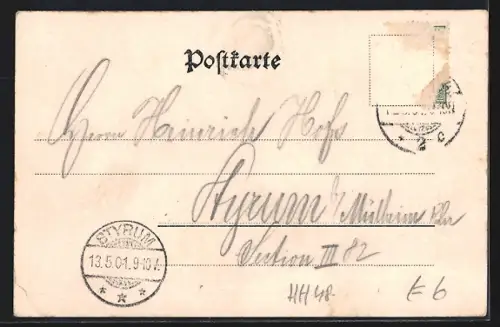 Postkarte
Herrn Heinrich Hofs
Styrum b/ Mülheim Ruhr
Section III 82
STYRUM
13.5.01.9-10V.
* * *
* 2 c
HH48
E6